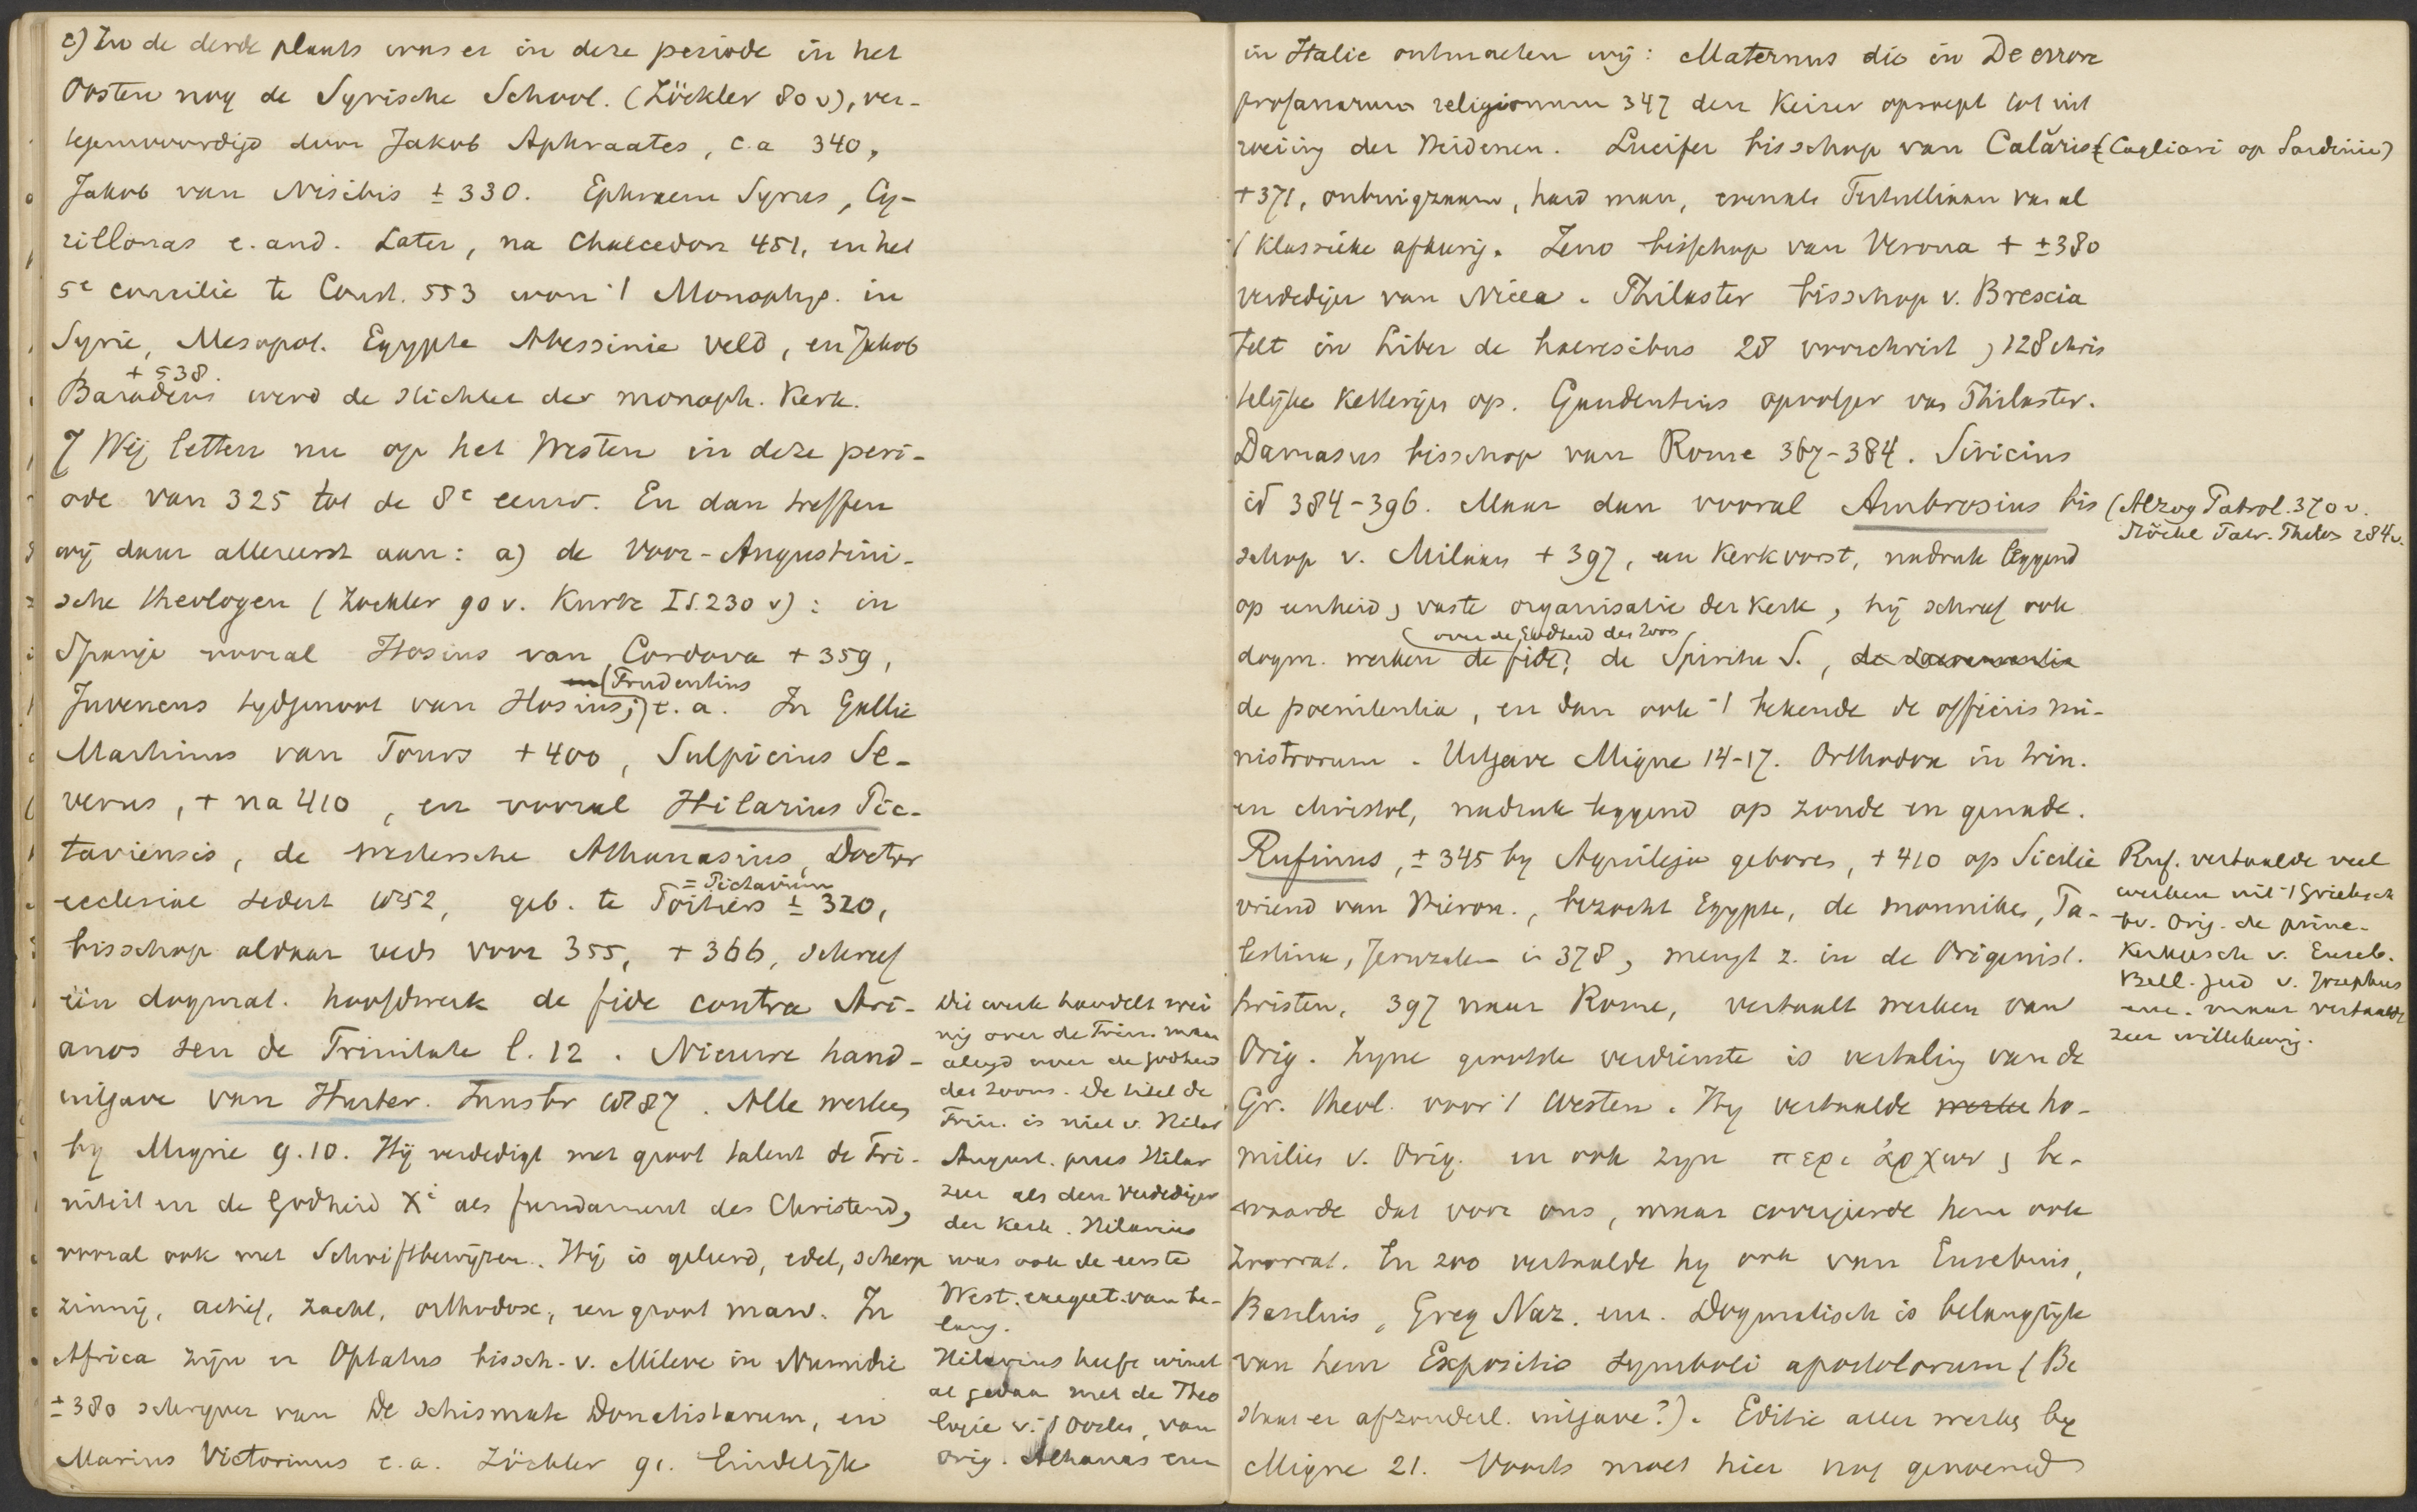 c) In de derde plaats was er in deze periode in het
Oosten nog de Syrische School. (Zöckler 80 v), ver-
tegenwoordigd door Jakob Aphraates, c.a 340,
Jakob van Nisibis ± 330. Ephraem Syrus, Cy-
rillonas e. and. Later, na Chalcedon 451, en het
5e concilie te Const. 553 won 't Monophys. in
Syrie, Mesopot. Egypte Abessinie veld, en Jakob
+ 538.
Baradeus werd de stichter der monoph. Kerk.
7 Wij letten nu op het Westen in deze peri-
ode van 325 tot de 8e eeuw. En dan treffen
wij daar allereerst aan: a) de Voor-Augustini-
sche theologen (Zöckler 90 v. Kurtz I S. 230 v): in
Spanje vooral Hosius van Cordova + 359,
(Prudentius
Juvencus tydgenoot van Hosius;) e. a. In Gallie
Martinus van Tours + 400, Sulpicius Se-
verus, + na 410, en vooral Hilarius Pic-
taviensis, de westersche Athanasius, Doctor
= Pictavium
ecclesiae sedert 1852, geb. te Poitiers ± 320,
bisschop aldaar reeds voor 355, + 366, schreef
één dogmat. hoofdwerk de fide contra Ari-
anos seu de Trinitate l. 12. Nieuwe hand-
uitgave van Hurter. Innsbr 1887. Alle werken
by Migne 9.10. Hij verdedigt met groot talent de Tri-
niteit en de Godheid Xi als fundament des Christend,
vooral ook met Schriftbewijzen. Hij is geleerd, edel, scherp
zinnig, actief, zacht, orthodox, een groot man. In
Africa zijn er Optatus bissch. v. Mileve in Numidie
± 380 schryver van De schismate Donatistarum, en
Marius Victorinus e.a. Zöckler 91. Eindelijk
Die werk handelt wei
nig over de Trin. maar
altyd over de godheid
des Zoons. De titel de
Trin. is niet v. Hilar
August. prees Hilar
zeer als den verdediger
der Kerk. Hilarius
was ook de eerste
West. exegeet van be-
lang.
Hilarius heeft winst
al gedaan met de Theo
logie v. 't Oosten, van
Orig. Athanas enz
in Italie ontmoeten wij: Maternus die in De errore
profanarum religionum 347 den Keizer oproept tot uit
roeiing der Heidenen. Lucifer bisschop van Calăris (Cagliari op Sardinie)
+ 371, onbuigzaam, hard man, evenals Tertulliaan van al
't klassieke afkeerig. Zeno bisschop van Verona + ± 380
verdediger van Nicea. Philaster bisschop v. Brescia
telt in Liber de haeresibus 28 voorchrist, 128 chris
telijke Ketterijen op. Gaudentius opvolger van Philaster.
Damasus bisschop van Rome 367-384. Siricius
id 384-396. Maar dan vooral Ambrosius bis
(Alzog Patrol. 370 v.
schop v. Milaan + 397, een Kerkvorst, nadruk leggend
op eenheid, vaste organisatie der Kerk, hij schreef ook
over de Godheid des Zoons
dogm. werken de fide, de Spiritu S., de sacramentis
de poenitentia, en dan ook 't bekende de officiis mi-
nistrorum. Uitgave Migne 14-17. Orthodox in trin.
en christol, nadruk leggend op zonde en genade.
Rufinus, ± 345 by Aquileja geboren, + 410 op Sicilie
vriend van Hieron., bezocht Egypte, de monniken, Pa-
lestina, Jeruzalem in 378, mengt z. in de Origenist.
twisten, 397 naar Rome, vertaalt werken van
Orig. Zyne grootste verdienste is vertaling van de
Gr. theol. voor 't Westen. Hy vertaalde werke ho-
milies v. Orig. en ook zyn περι ἀρχων, be-
waarde dat voor ons, maar corrigeerde hem ook
En zoo vertaalde hy ook van Eusebius,
Basilius, Greg Naz. enz. Dogmatisch is belangrijk
van hem Expositio symboli apostolorum (Be
staat er afzonderl. uitgave?). Editie aller werken by
Migne 21. Voorts moet hier nog genoemd
Ruf. vertaalde veel
werken uit 't Grieksch
bv. Orig. de princ.
Kerkgesch v. Euseb.
Bell. Jud v. Josephus
enz. maar vertaalde
zeer willekeurig.